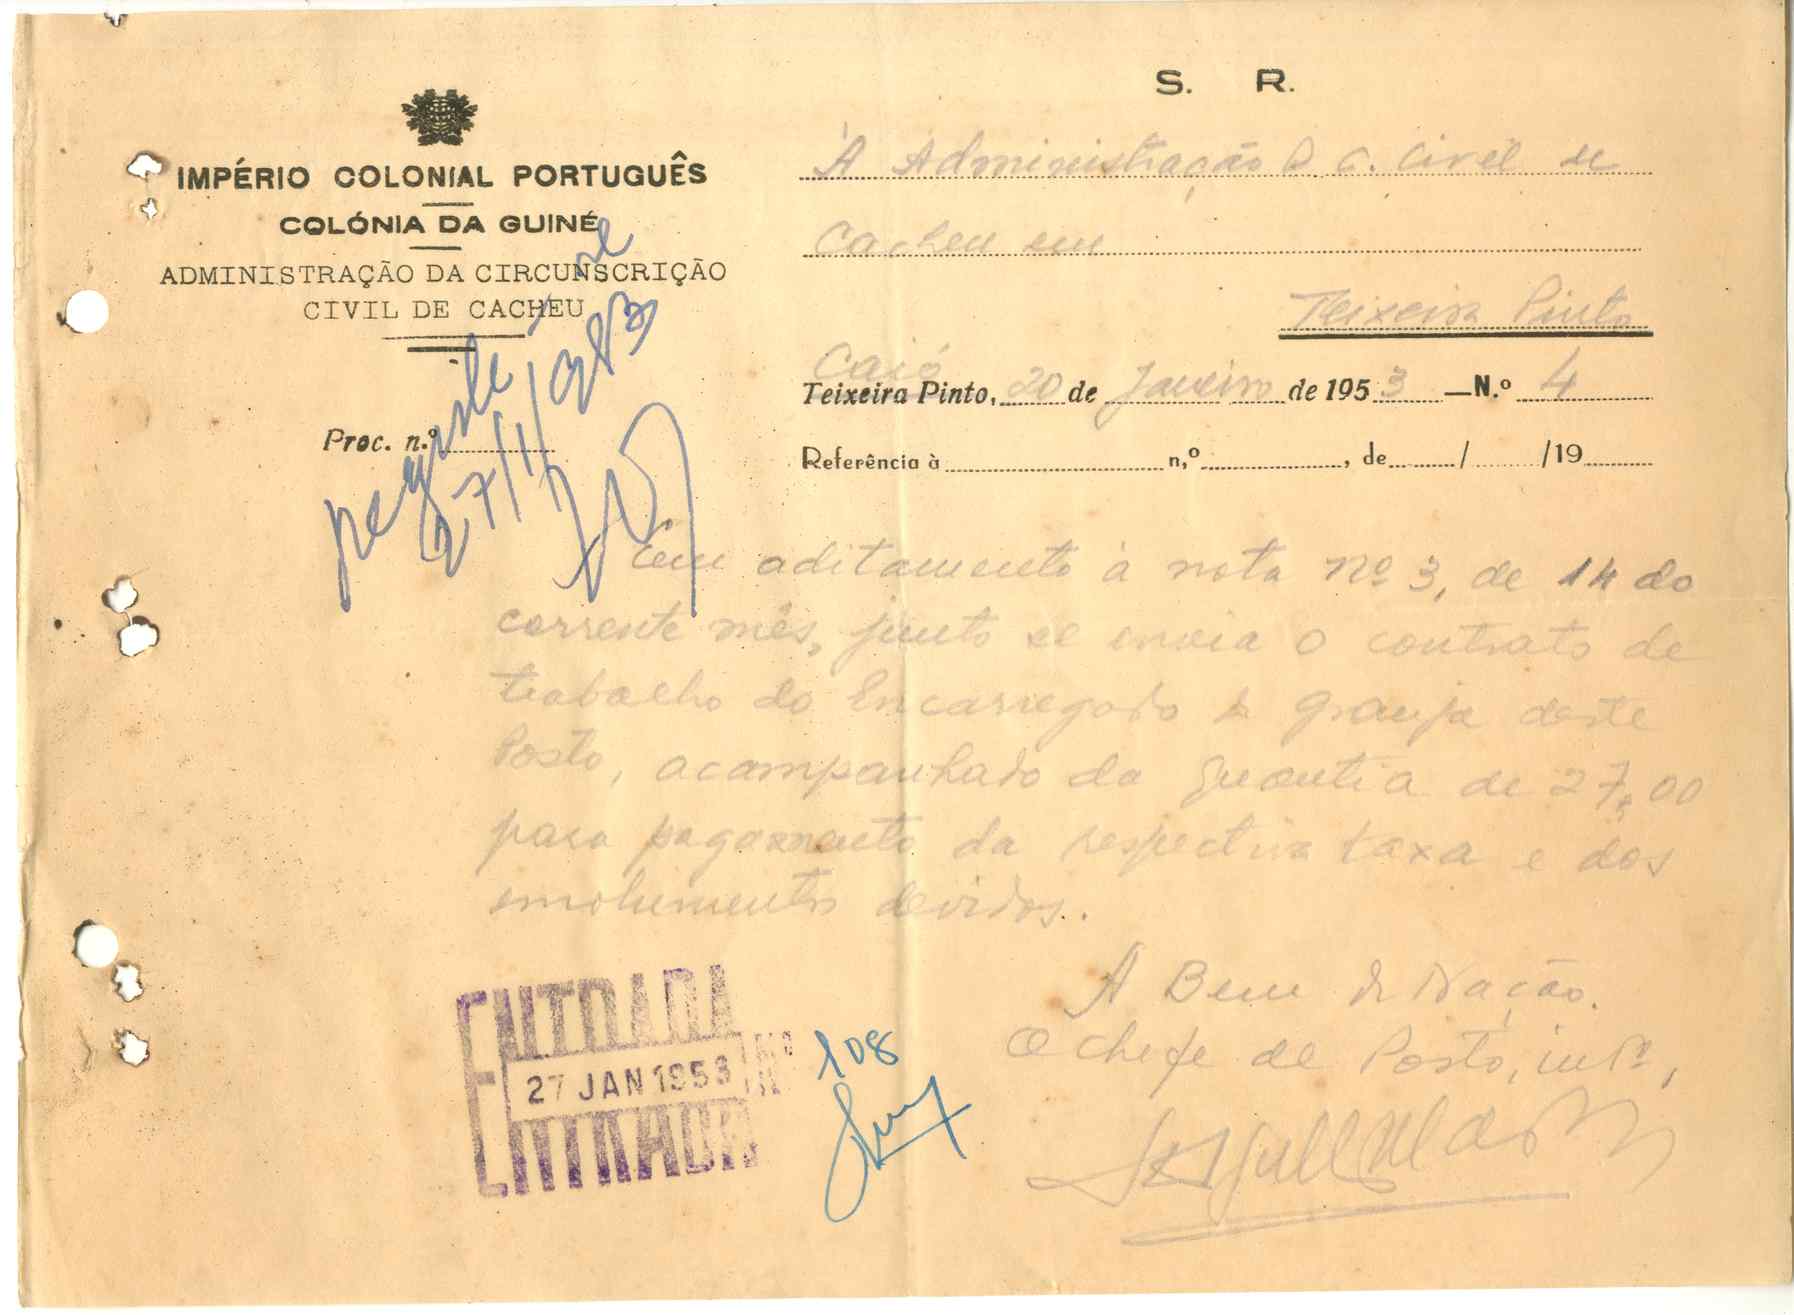 S. R.
IMPÉRIO COLONIAL PORTUGUÊS
COLÓNIA DA GUINÉ
ADMINISTRAÇÃO DA CIRCUNSCRIÇÃO
CIVIL DE CACHEU
À Administração D. C. Civil de
Cacheu em
Teixeira Pinto
Caió
Teixeira Pinto, 20 de Janeiro de 1953 —N.º 4
Proc. n.º
Referência à n,º , de / /19
registe
27/1/1953
Em aditamento à nota nº 3, de 14 do
corrente mês, junto se envia o contrato de
trabalho do Encarregado da Granja deste
Posto, acompanhado da quantia de 27,00
para pagamento da respectiva taxa e dos
emolumentos devidos.
A Bem da Nação.
O Chefe de Posto, intº,
ENTRADA
27 JAN 1953 Nº
ENTRADA
108